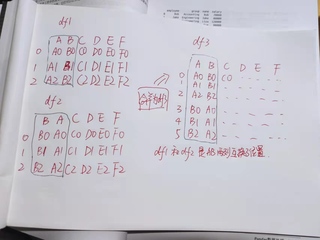 df1
A B C D E F
0 A0 B0 C0 D0 E0 F0
1 A1 B1 C1 D1 E1 F1
2 A2 B2 C2 D2 E2 F2
df2
B A C D E F
0 B0 A0 C0 D0 E0 F0
1 B1 A1 C1 D1 E1 F1
2 B2 A2 C2 D2 E2 F2
合并到
df3
A B C D E F
0 A0 B0 C0
1 A1 B1
2 A2 B2
3 B0 A0
4 B1 A1
5 B2 A2
df1 和 df2 是AB两列互换了位置.